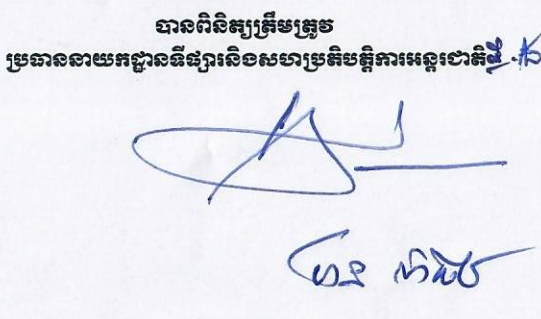 បានពិនិត្យត្រឹមត្រូវ
ប្រធាននាយកដ្ឋានទីផ្សារនិងសហប្រតិបត្តិការអន្តរជាតិ